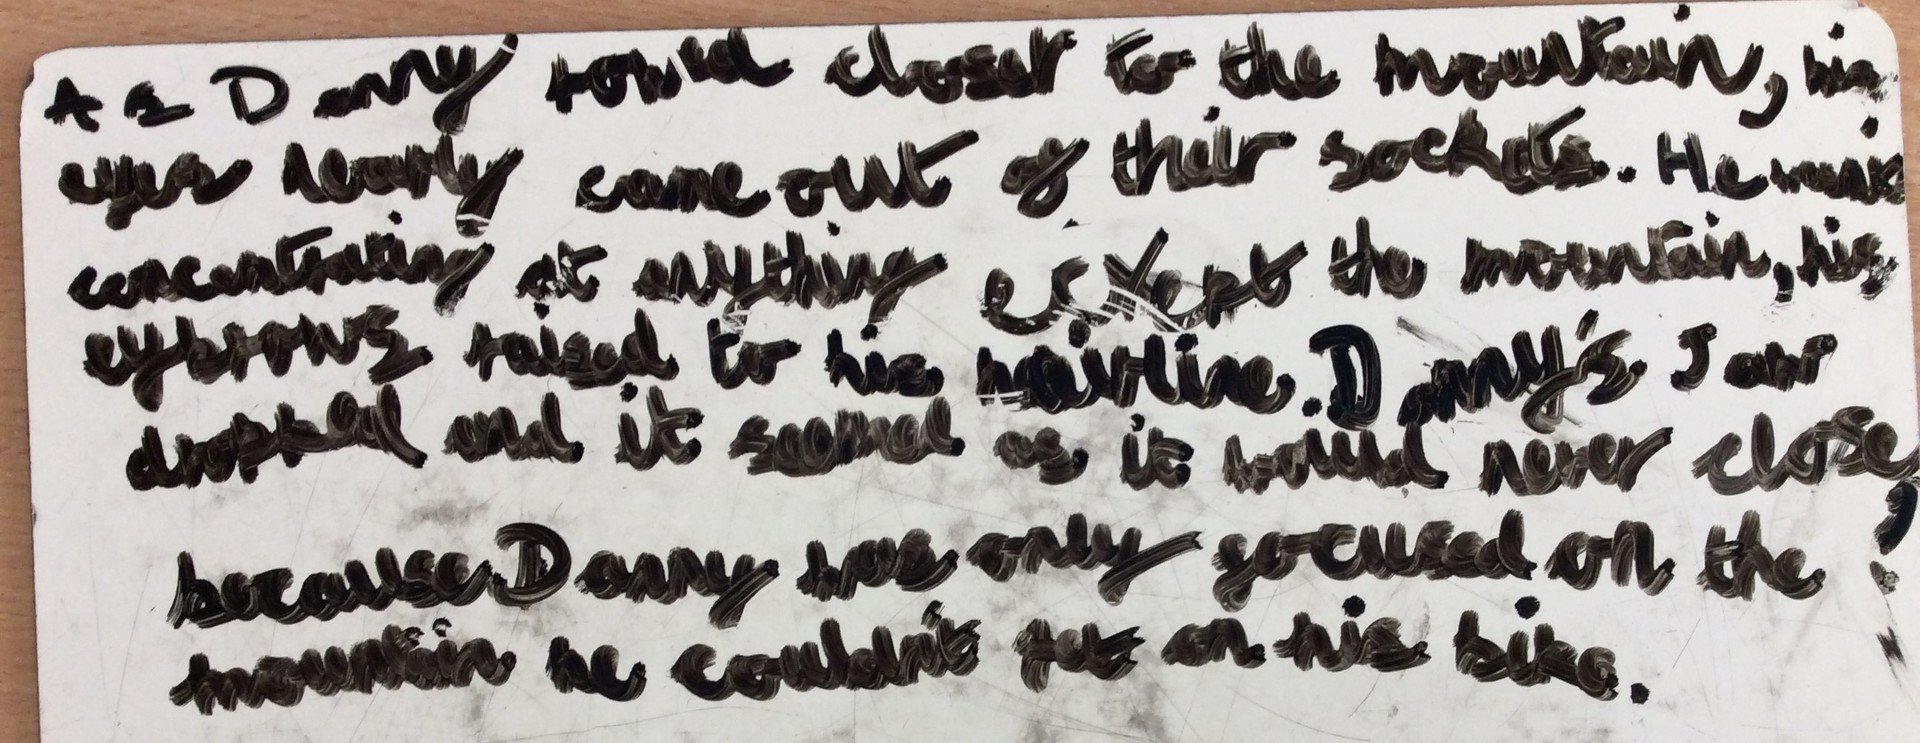 As Danny towed closer to the mountain, his
eyes nearly came out of their sockets. He wasn't
concentrating at anything except the mountain, his
eybrows raised to his hairline. Danny's Jaw
dropped and it seemed as it would never close,
because Danny was only focused on the
mountain he couldn't on his bike.